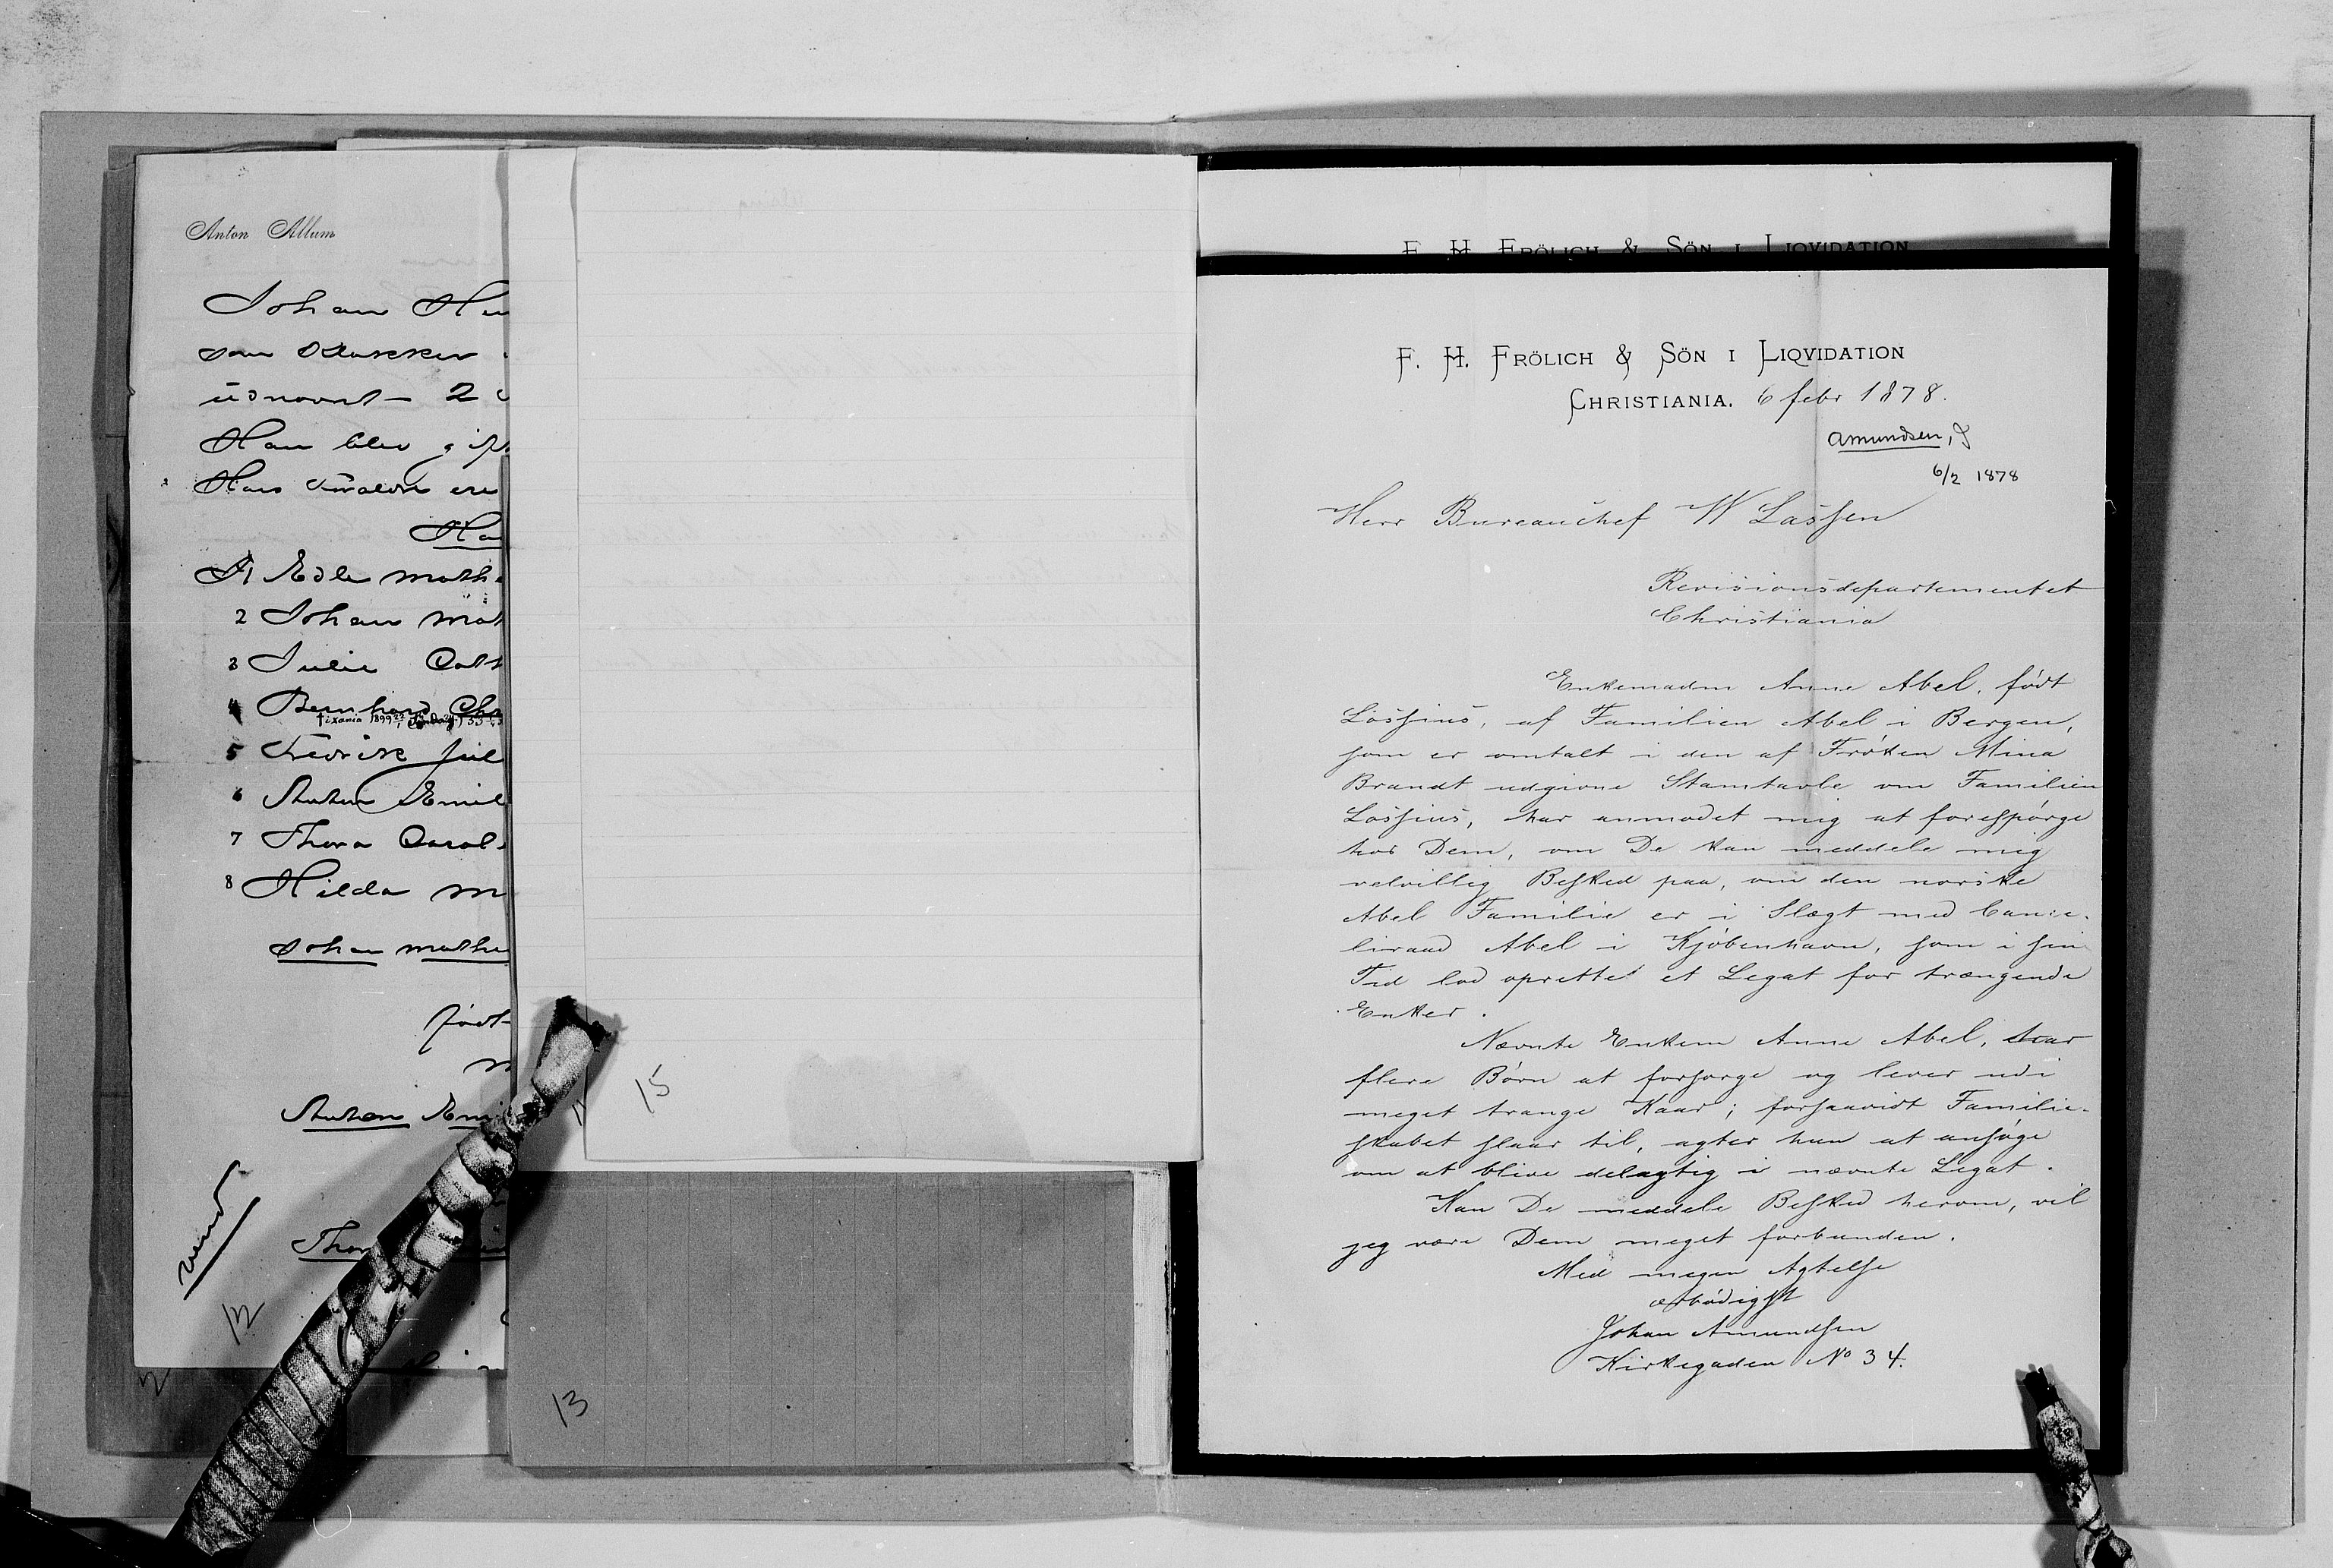 Anton Allum
Johan
som
2
Han blev gift
Hans
1 Edle Math
2 Johan Mat
3 Julie Cath
4 Bernhard Chr
5 Fredrik Jul
6 Anton Emil
7 Thora Carol
8 Hilda M
Johan Mathe
født
Anton Emi
Thor
vend
12
2
13
15
F. H. FRÖLICH & SÖN I LIQVIDATION
F. H. FRÖLICH & SÖN I LIQVIDATION
CHRISTIANIA. 6 febr 1878.
Amundsen, J
6/2 1878
Herr Bureauchef W Lassen
Revisionsdepartementet
Christiania
Enkemadm Anne Abel, født
Lossius, af Familien Abel i Bergen,
som er omtalt i den af Frøken Mina
Brandt udgivne Stamtavle om Familien
Lossius, har anmodet mig at forespørge
hos Dem, om De kan meddele mig
velvillig Besked paa, om den norske
Abel Familie er i Slægt med Cance-
liraad Abel i Kjøbenhavn, som i sin
Tid lod oprette et Legat for trængende
Enker.
Nævnte Enkem Anne Abel, har
flere Børn at forsørge og lever udi
meget trange Kaar; forsaavidt Familie-
skabet slaar til, agter hun at ansøge
om at blive delagtig i nævnte Legat.
Kan De meddele Besked herom, vil
jeg være Dem meget forbunden.
Med megen Agtelse
ærbødigst
Johan Amundsen
Kirkegaden No 34.